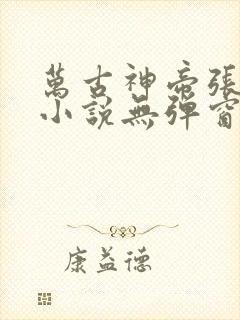 萬古神帝張
小說無彈窗
康益德